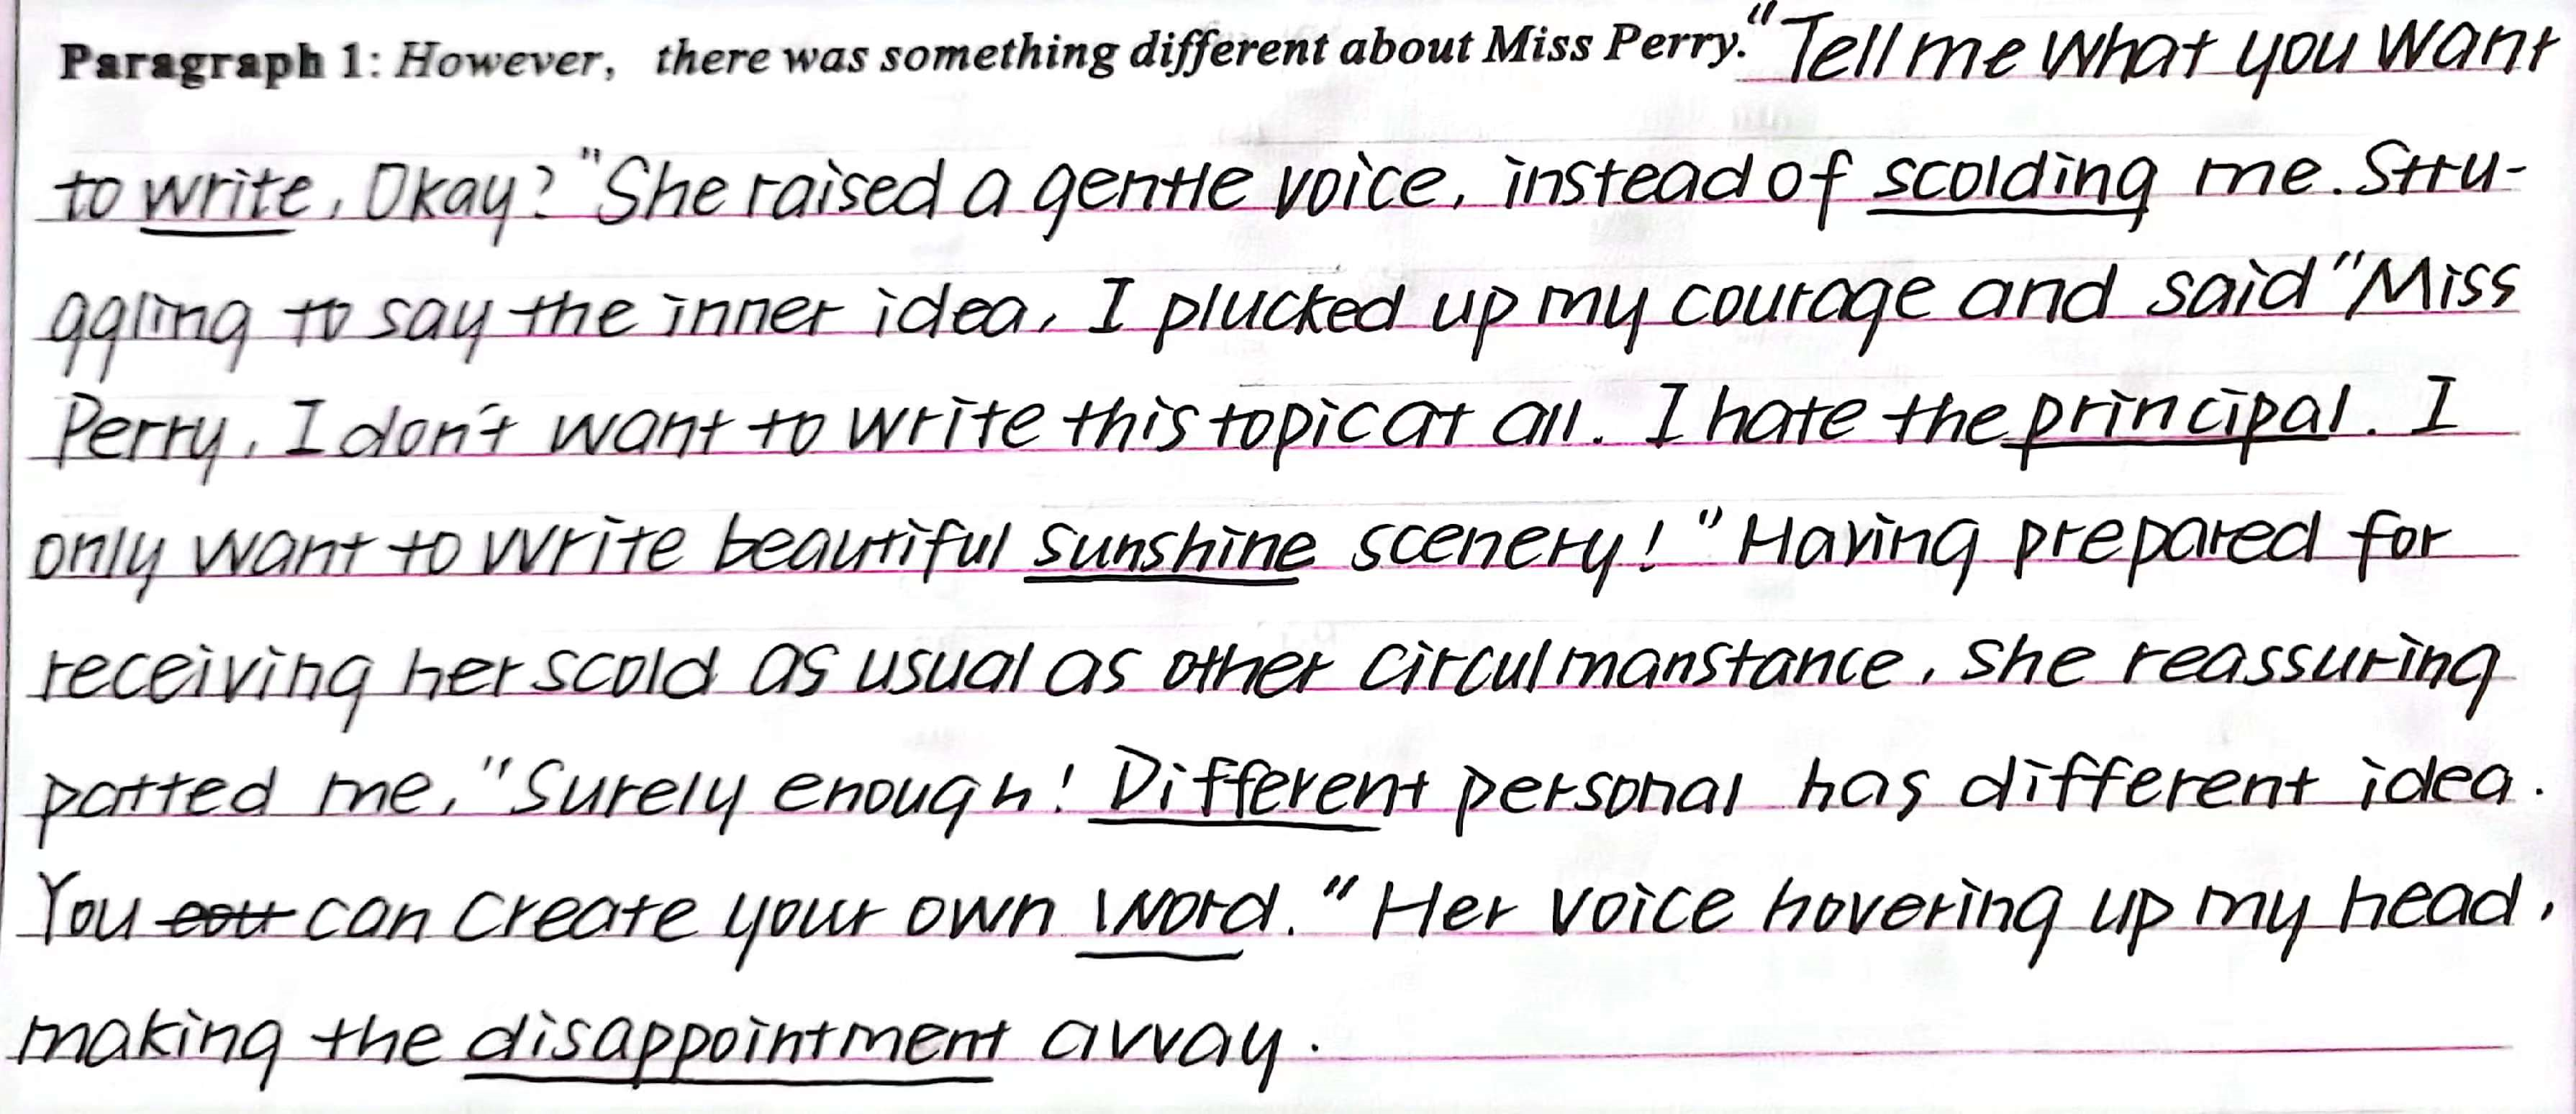 Paragraph 1: However, there was something different about Miss Perry. "Tell me what you want
to write, Okay?" She raised a gentle voice, instead of scolding me. Stru-
ggling to say the inner idea, I plucked up my courage and said "Miss
Perry, I don't want to write this topic at all. I hate the principal. I
only want to write beautiful sunshine scenery!" Having prepared for
receiving her scold as usual as other circulmanstance, she reassuring
patted me, "Surely enough! Different personal has different idea.
You can create your own word." Her voice hovering up my head,
making the disappointment away.